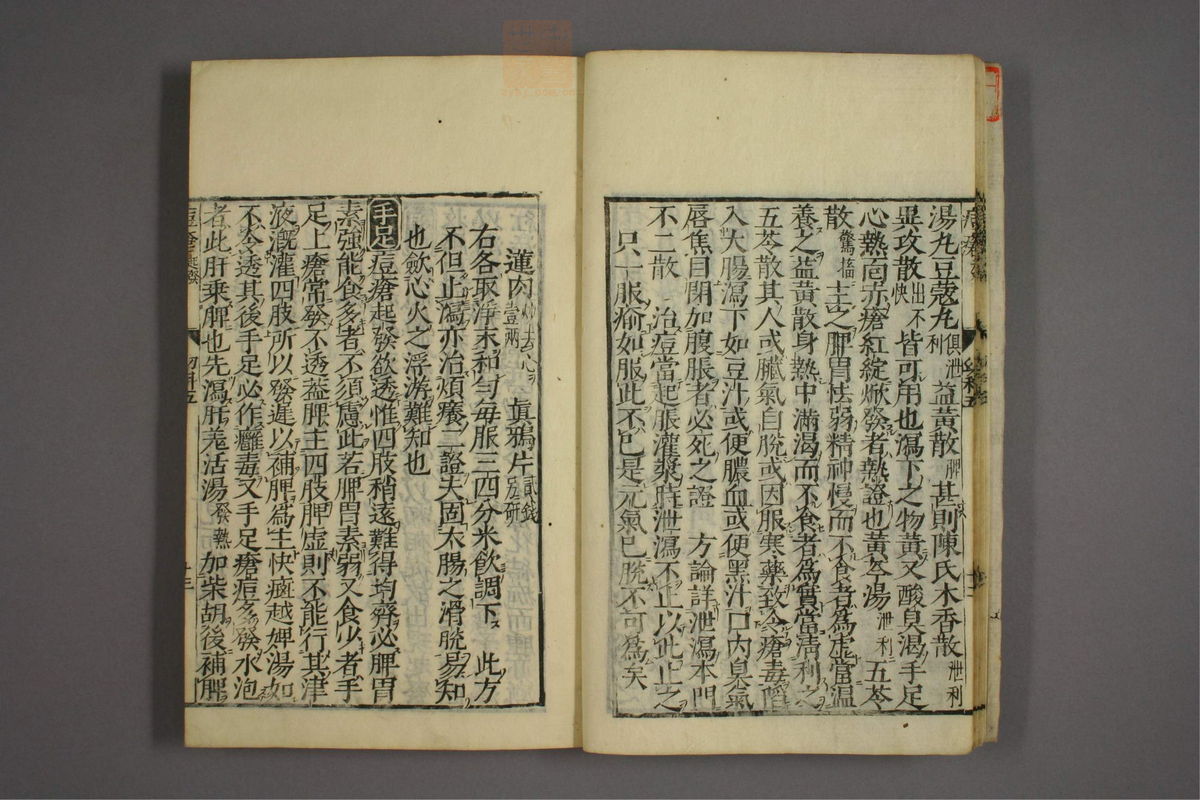 湯丸豆蔻丸俱泄利益黃散脾甚則陳氏木香散泄利
異攻散出不快皆可用也瀉下之物黃又酸臭渴手足
心熱同赤瘡紅綻焮發者熱證也黃芩湯泄利五苓
散驚搐主之脾胃怯弱精神慢而不食者為虛當溫
養之益黃散身熱中滿渴而不食者為實當清利之
五苓散其人或臟氣自脫或因服寒藥致令瘡毒陷
入大腸瀉下如豆汁或便膿血或便黑汁口內臭氣
唇焦目閉加腹脹者必死之證 方論詳泄瀉本門
不二散 治痘當起脹灌漿時泄瀉不止以此止之
只一服痊如服此不已是元氣已脫不可為矣
蓮肉炒去心壹兩 真鴉片貳錢另研
右各取淨末和勻每服三四分米飲調下 此方
不但止瀉亦治煩癢二證夫固大腸之滑脫易知
也斂心火之浮游難知也
手足 痘瘡起發欲透惟四肢稍遠難得均齊必脾胃
素強能食多者不須慮此若脾胃素弱又食少者手
足上瘡常發不透蓋脾主四肢脾虛則不能行其津
液溉灌四肢所以發遲以補脾為主快癍越婢湯如
不令透其後手足必作癰毒又手足瘡痘多發水泡
者此肝乘脾也先瀉肝羌活湯發熱加柴胡後補脾